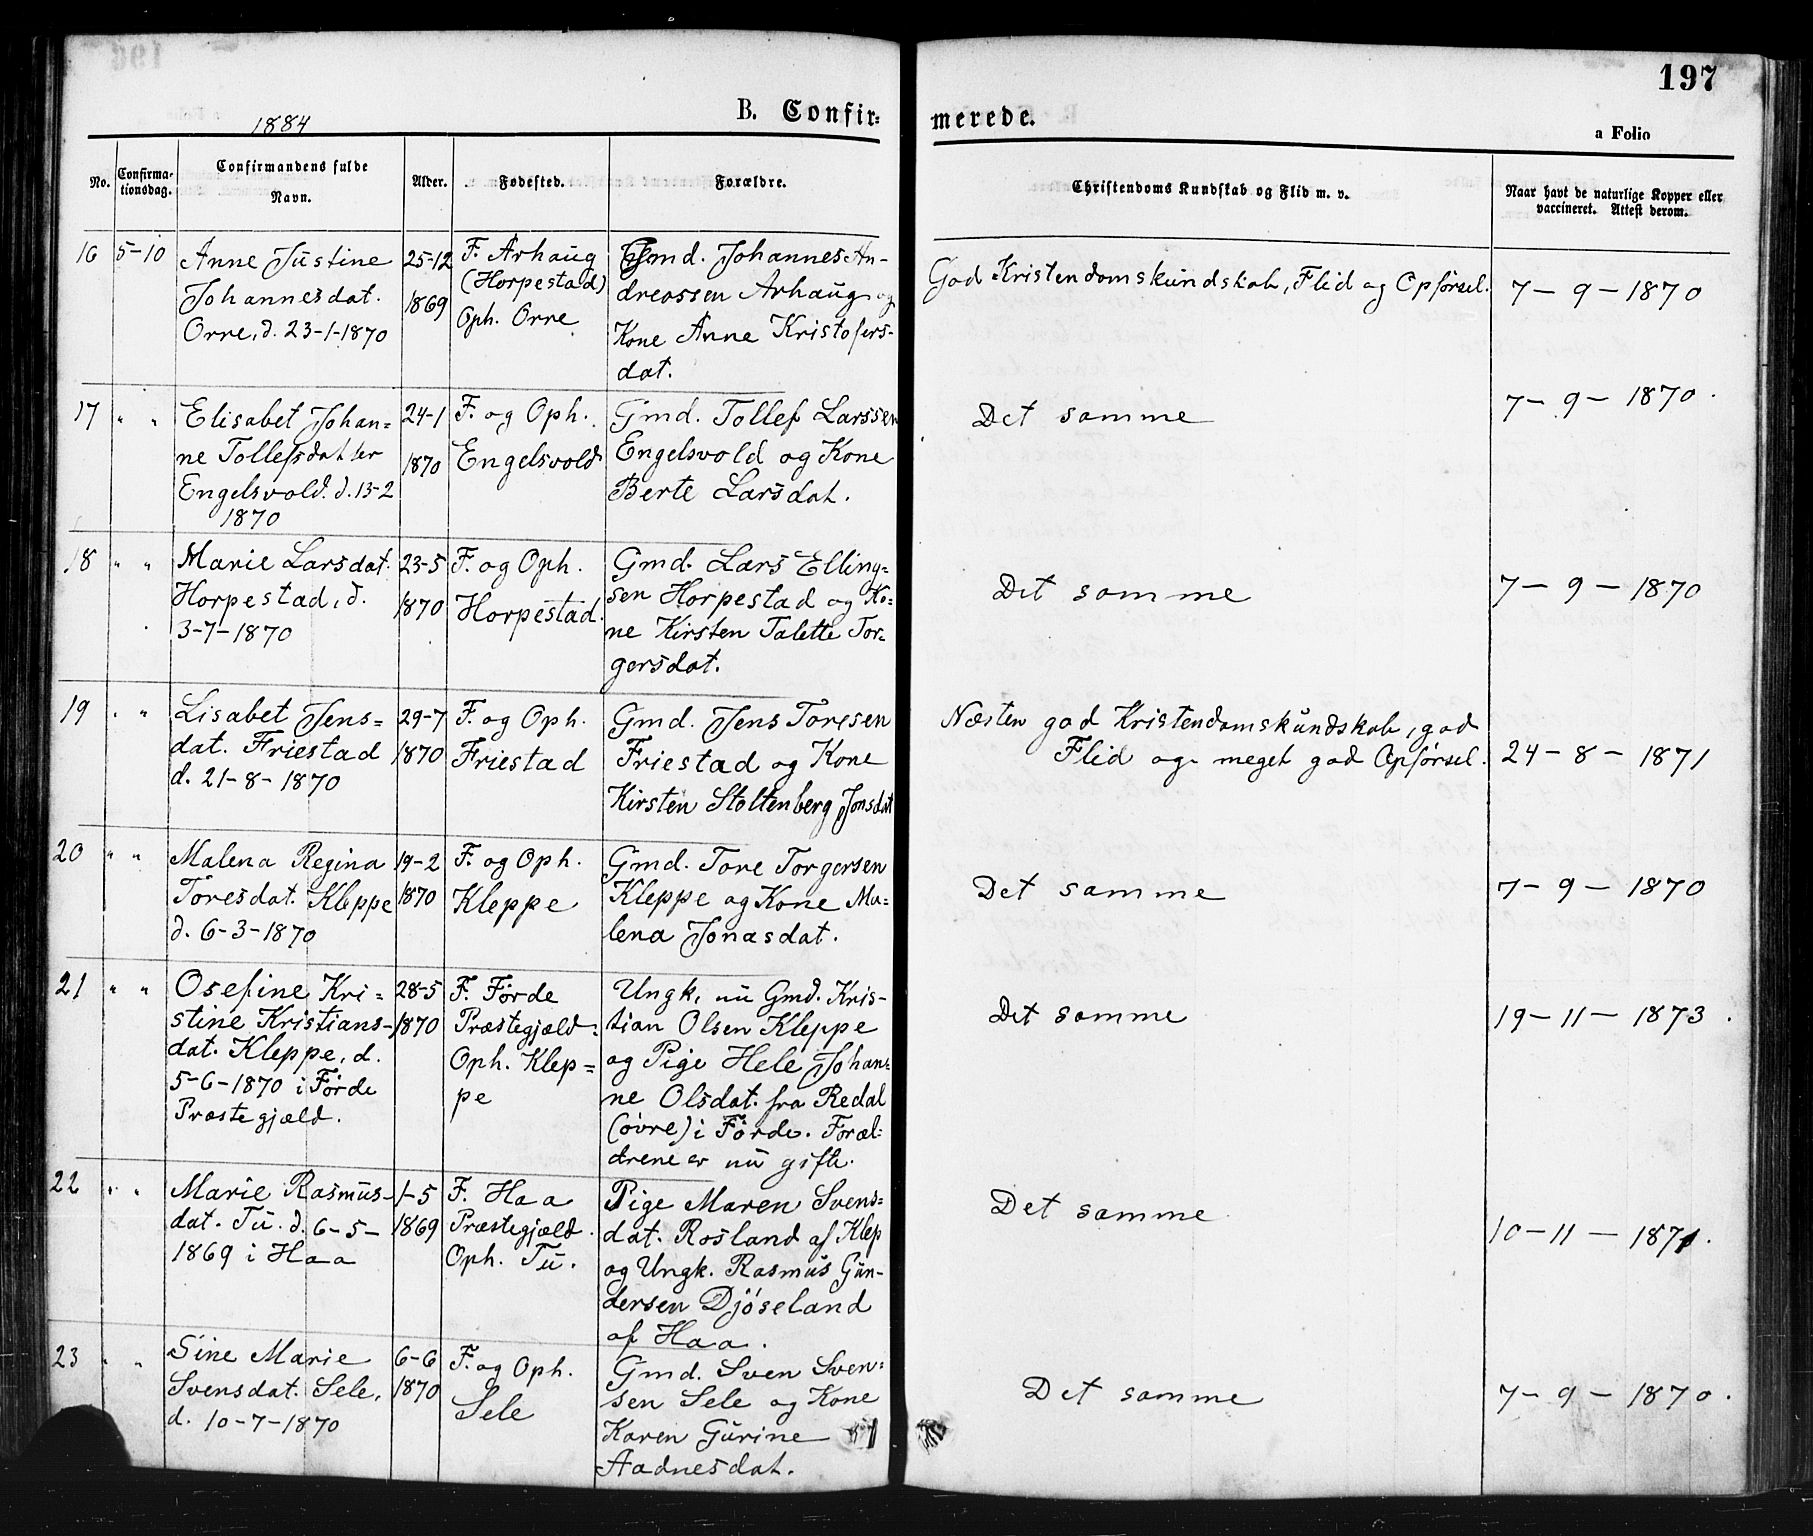 197
B. Confir-
merede.
1884
a Folio
No.
Confirma-
tionsdag.
Confirmandens fulde
Navn.
Alder.
Fødested.
Forældre.
Christendoms Kundskab og Flid m. v.
Naar havt de naturlige Kopper eller
vaccineret. Attest derom.
16
5-10
Anne Justine
Johannesdat.
Orre, d. 23-1-1870
25-12
1869
F. Arhaug
(Horpestad)
Oph. Orre
Gmd. Johannes An-
dreassen Arhaug og
Kone Anne Kristofers-
dat.
God Kristendomskundskab, Flid og Opførsel.
7-9-1870
17
" "
Elisabet Johan=
ne Tollefsdatter
Engelsvold. d. 13-2
1870
24-1
1870
F. og Oph.
Engelsvold
Gmd. Tollef Larssen
Engelsvold og Kone
Berte Larsdat.
Det samme
7-9-1870.
18
" "
Marie Larsdat.
Horpestad, d.
3-7-1870
23-5
1870
F. og Oph.
Horpestad.
Gmd. Lars Elling-
sen Horpestad og Ko-
ne Kirsten Talette Tor-
gersdat.
Det samme
7-9-1870
19
" "
Lisabet Jens=
dat. Friestad
d. 21-8-1870
29-7
1870
F. og Oph.
Friestad
Gmd. Jens Toresen
Friestad og Kone
Kirsten Stoltenberg Jonsdat
Næsten god Kristendomskundskab, god
Flid og meget god Opførsel.
24-8-1871
20
" "
Malena Regina
Toresdat. Kleppe
d. 6-3-1870
19-2
1870
F. og Oph.
Kleppe
Gmd. Tore Torgersen
Kleppe og Kone Ma-
lena Jonasdat.
Det samme
7-9-1870
21
" "
Osefine Kri-
stine Kristians-
dat. Kleppe, d.
5-6-1870 i Førde
Præstegjæld.
28-5
1870
F. Førde
Præstegjæld.
Oph. Klep=
pe
Ungk. nu Gmd. Kris-
tian Olsen Kleppe
og Pige Hele Johan=
ne Olsdat. fra Redal
(øvre) i Førde. Foræl-
drene er nu gifte.
Det samme
19-11-1873.
22
" "
Marie Rasmus-
dat. Tu. d. 6-5-
1869 i Haa
1-5
1869
F. Haa
Præstegjæld.
Oph. Tu.
Pige Maren Svens=
dat. Rosland af Klep
og Ungk. Rasmus Gun-
dersen Djøseland
af Haa.
Det samme
10-11-1871.
23
" "
Sine Marie
Svensdat. Sele,
d. 10-7-1870
6-6
1870
F. og Oph.
Sele
Gmd. Sven Sven=
sen Sele og Kone
Karen Gurine
Aadnesdat.
Det samme
7-9-1870.